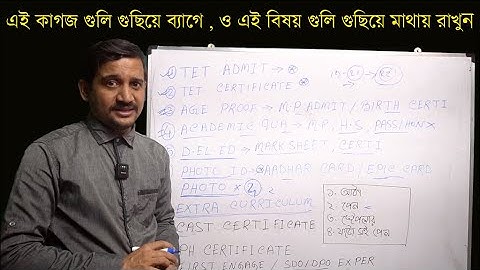 এই কাগজ গুলি গুছিয়ে ব্যাগে , ও এই বিষয় গুলি গুছিয়ে মাথায় রাখুন
① TET ADMIT →
② TET CERTIFICATE
③ AGE PROOF → M.P. ADMIT / BIRTH CERTI
④ ACADEMIC QUA → M.P, H.S, PASS/HON
⑤ D.EL.ED → MARKSHEET, CERTI
PHOTO ID → AADHAR CARD / EPIC CARD
PHOTO ×
EXTRA CURRICULUM
CAST CERTIFICATE
PH CERTIFICATE
FIRST ENGAGE / SDO/DPO EXPER
২. পেন